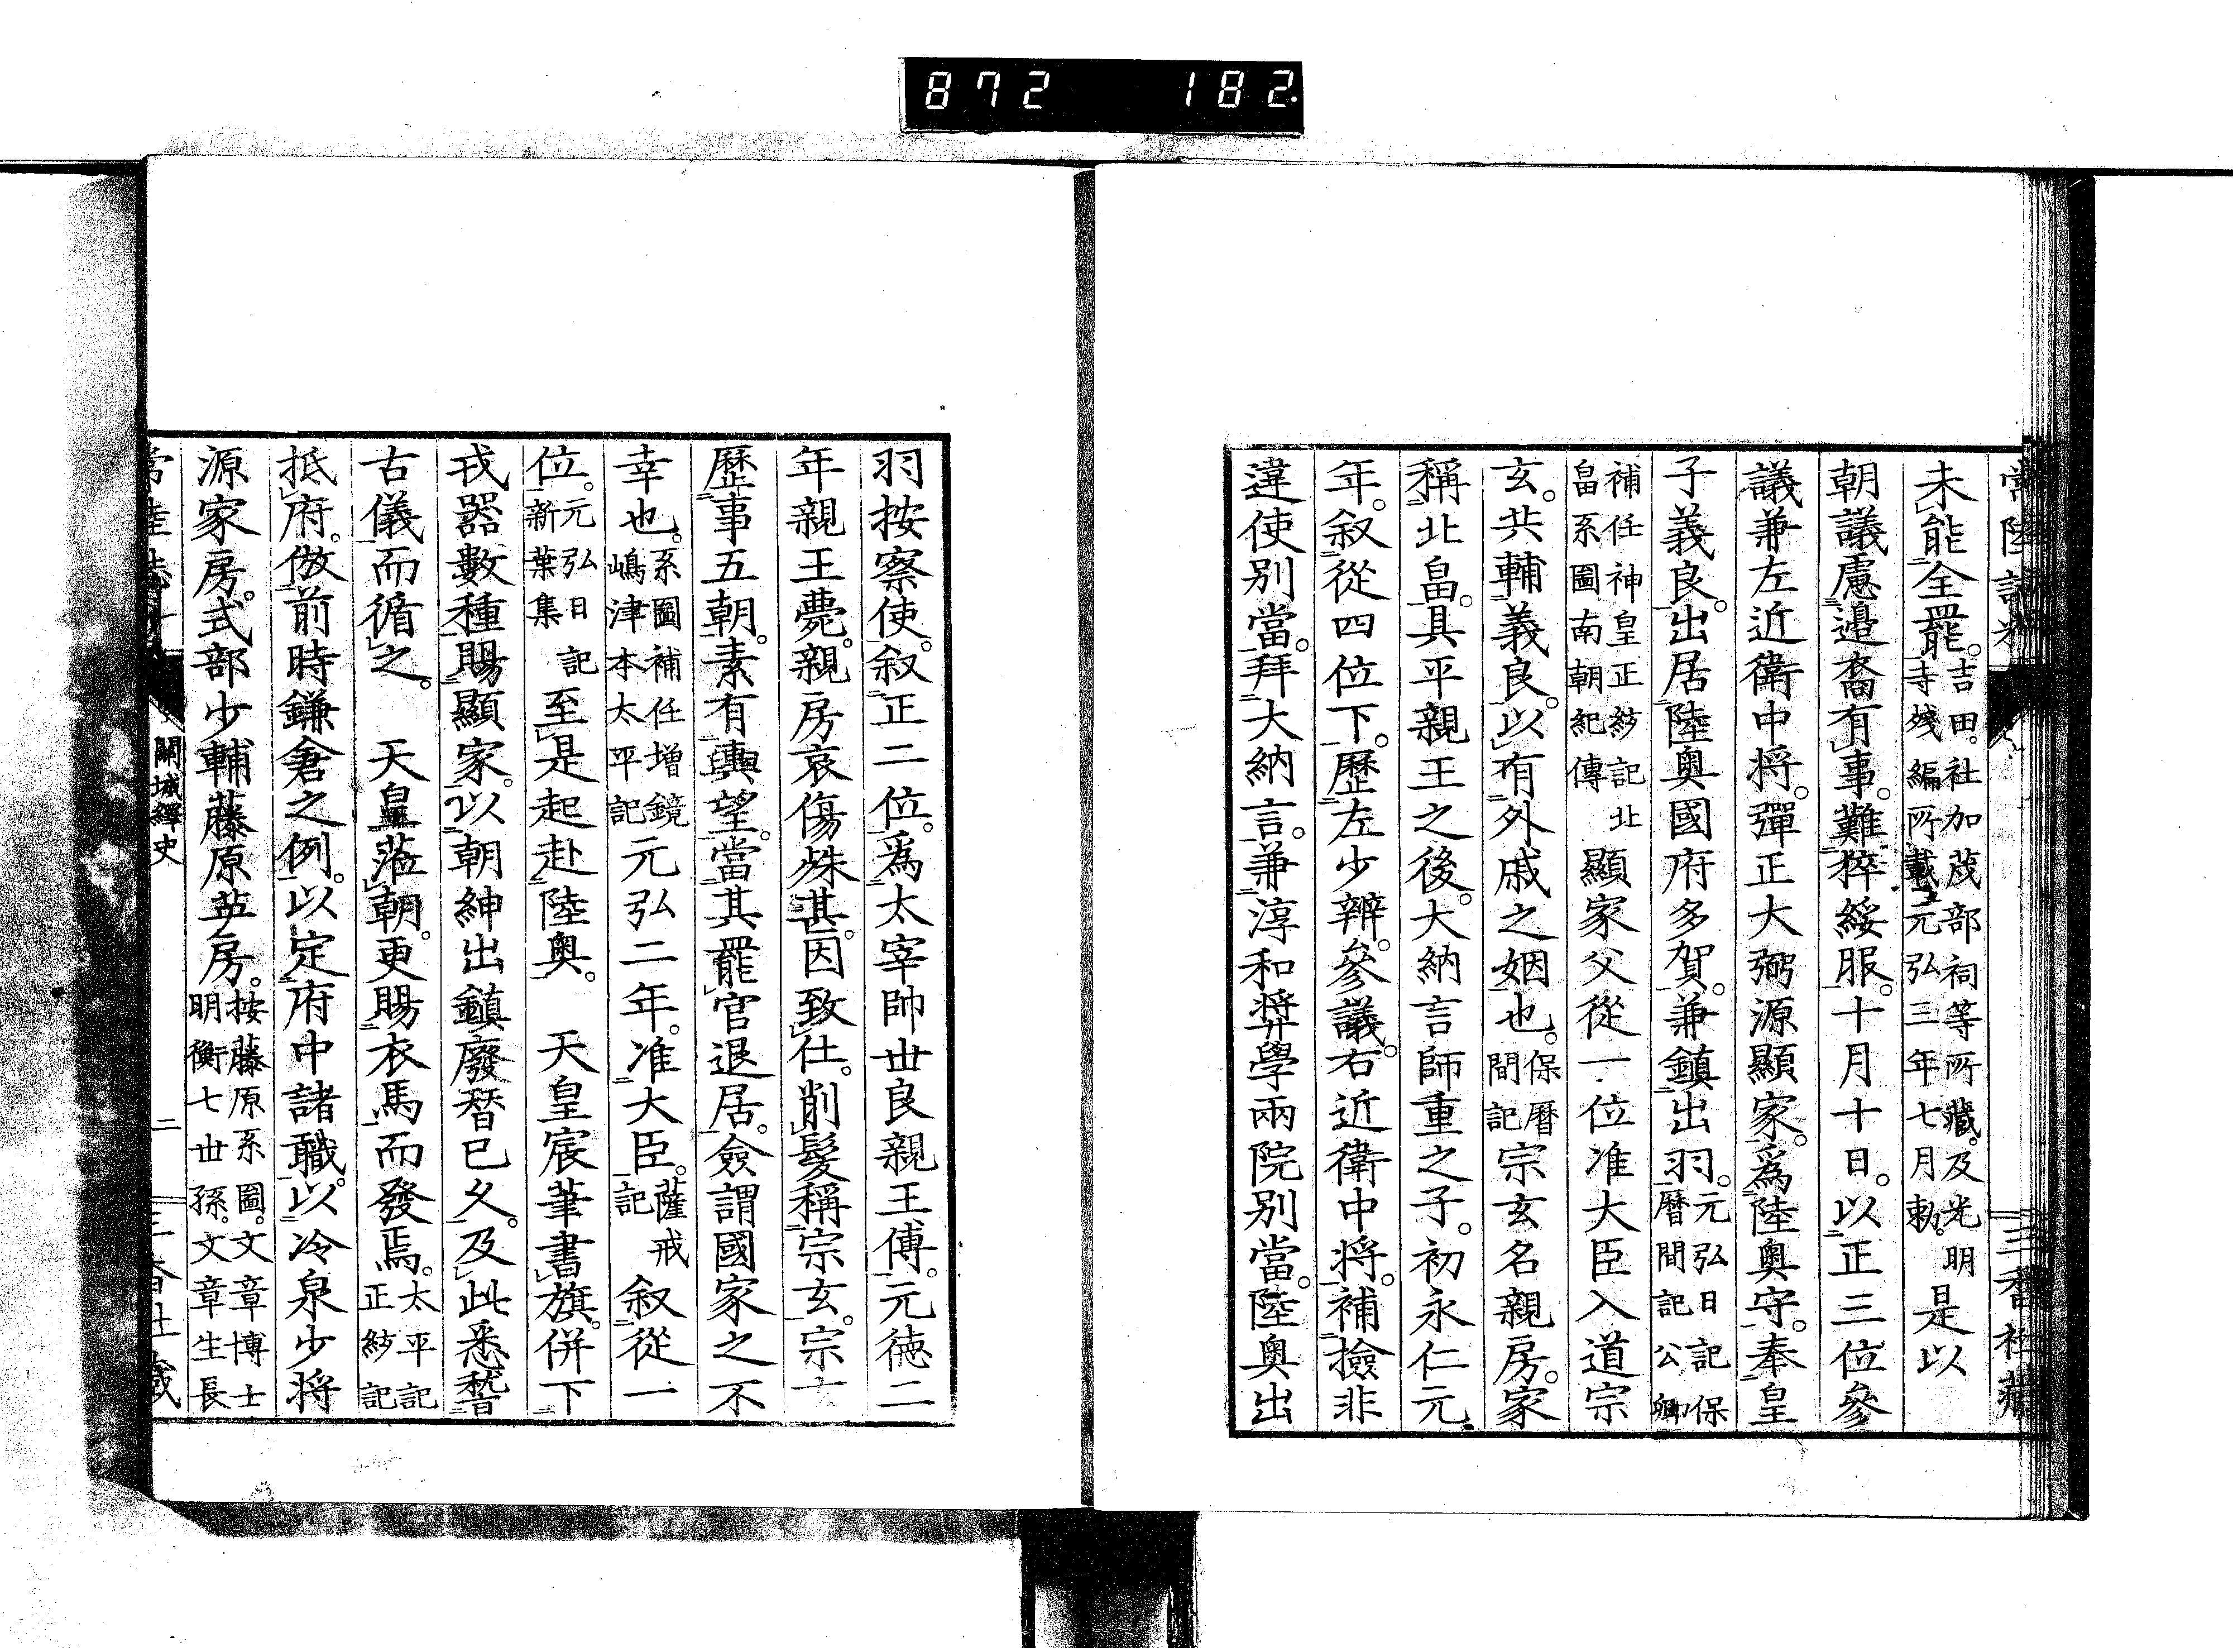 872 182
未能全罷。吉田。社加茂部祠等所藏。及光明寺殘編所載元弘三年七月勅。是以
朝議慮邉裔有事。難猝綏服。十月十日。以正三位參
議兼左近衛中将。彈正大弼源顯家。爲陸奥守。奉皇
子義良。出居陸奥國府多賀。兼鎮出羽。元弘日記保曆間記公卿
補任神皇正統記北畠系圖南朝紀傳顯家父從一位准大臣入道宗
玄。共輔義良。以有外戚之姻也。保曆間記宗玄名親房。家
稱北畠。具平親王之後。大納言師重之子。初永仁元
年。叙從四位下。歷左少辨。參議。右近衛中将。補撿非
違使別當。拜大納言。兼淳和奬學兩院別當。陸奥出
羽按察使。叙正二位。爲太宰帥世良親王傅。元德二
年親王薨。親房哀傷殊甚。因致仕。削髮稱宗玄。宗
歷事五朝。素有輿望。當其罷官退居。僉謂國家之不
幸也。系圖補任增鏡嶋津本太平記元弘二年。准大臣。薩戒記叙從一
位。元弘日記新葉集至是起赴陸奥。天皇宸筆書旗。併下
戎器數種賜顯家。以朝紳出鎮廢替已久。及此悉稽
古儀而循之。天皇蒞朝。更賜衣馬而發焉。太平記正統記
抵府。倣前時鎌倉之例。以定府中諸職。以冷泉少将
源家房。式部少輔藤原英房。按藤原系圖。文章博士明衡七世孫。文章生長
關城繹史
二